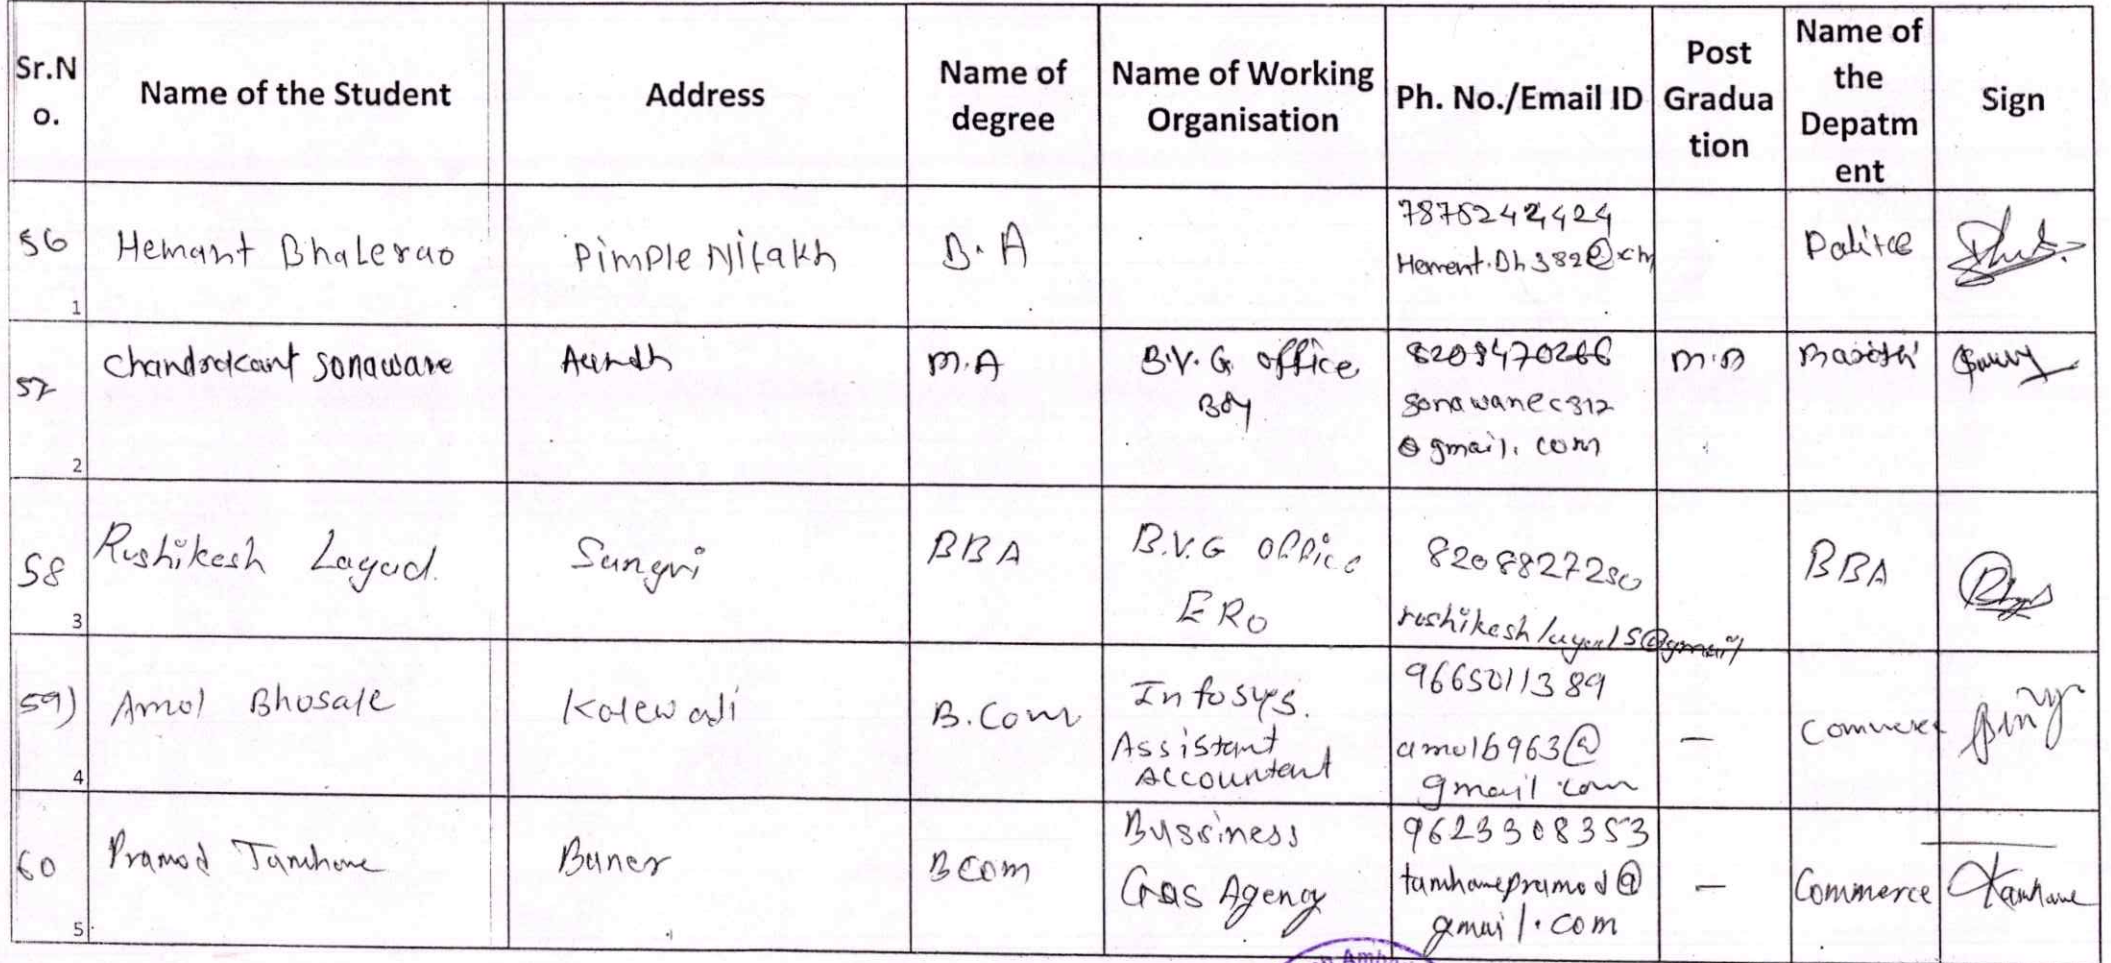 Sr.N
o.
Name of the Student
Address
Name of
degree
Name of Working
Organisation
Ph. No./Email ID
Post
Gradua
tion
Name of
the
Depatm
ent
Sign
56
1
Hemant Bhalerao
Pimple Nilakh
B.A
57
2
Chandrakant Sonawane
Aundh
M.A
B.V.G office
Boy
sonawanec312
@gmail.com
M.A
58
3
Rushikesh Layad.
Sangvi
BBA
B.V.G office
ERO
BBA
59)
4
Amol Bhosale
Kalewadi
B.Com
Infosys.
Assistant
Accountant
9665011389
amolb963@
gmail com
—
Commerce
60
5
Pramod Tamhane
Baner
BCom
Bussiness
Gas Agency
9623308353
tamhanepramod@
gmail.com
—
Commerce
Tamhane